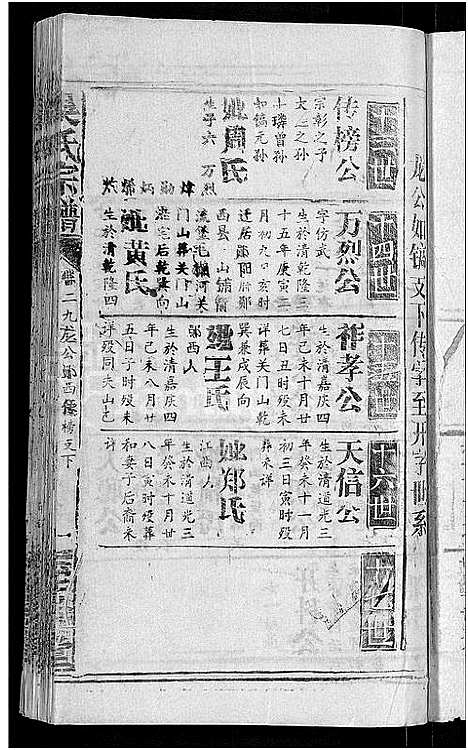 龙公如镐支下传字至开字世系
十三世
传榜公
宗彰之子
大连之孙
十璘曾孙
知镐元孙
妣周氏
生子六 万烈
十四世
万烈公
字仿武
生於清乾隆三
十五年庚寅二
月初九日亥时
迁居郧阳府郧
西县
葬关门山
妣黄氏
生於清乾隆四
十五世
祚孝公
生於清嘉庆四
年己未十月廿
七日丑时殁未
详葬关门山乾
巽兼戌辰向
妣王氏
郧西人
生於清嘉庆四
年己未八月廿
五日子时殁未
详殁同夫山屯
十六世
天信公
生於清道光三
年癸未十一月
初三日寅时殁
葬未详
妣郑氏
江西人
生於清道光三
年癸未十月廿
八日寅时殁葬
和妻子后裔未
详
吴氏宗谱
卷二九龙公郧西传榜支下